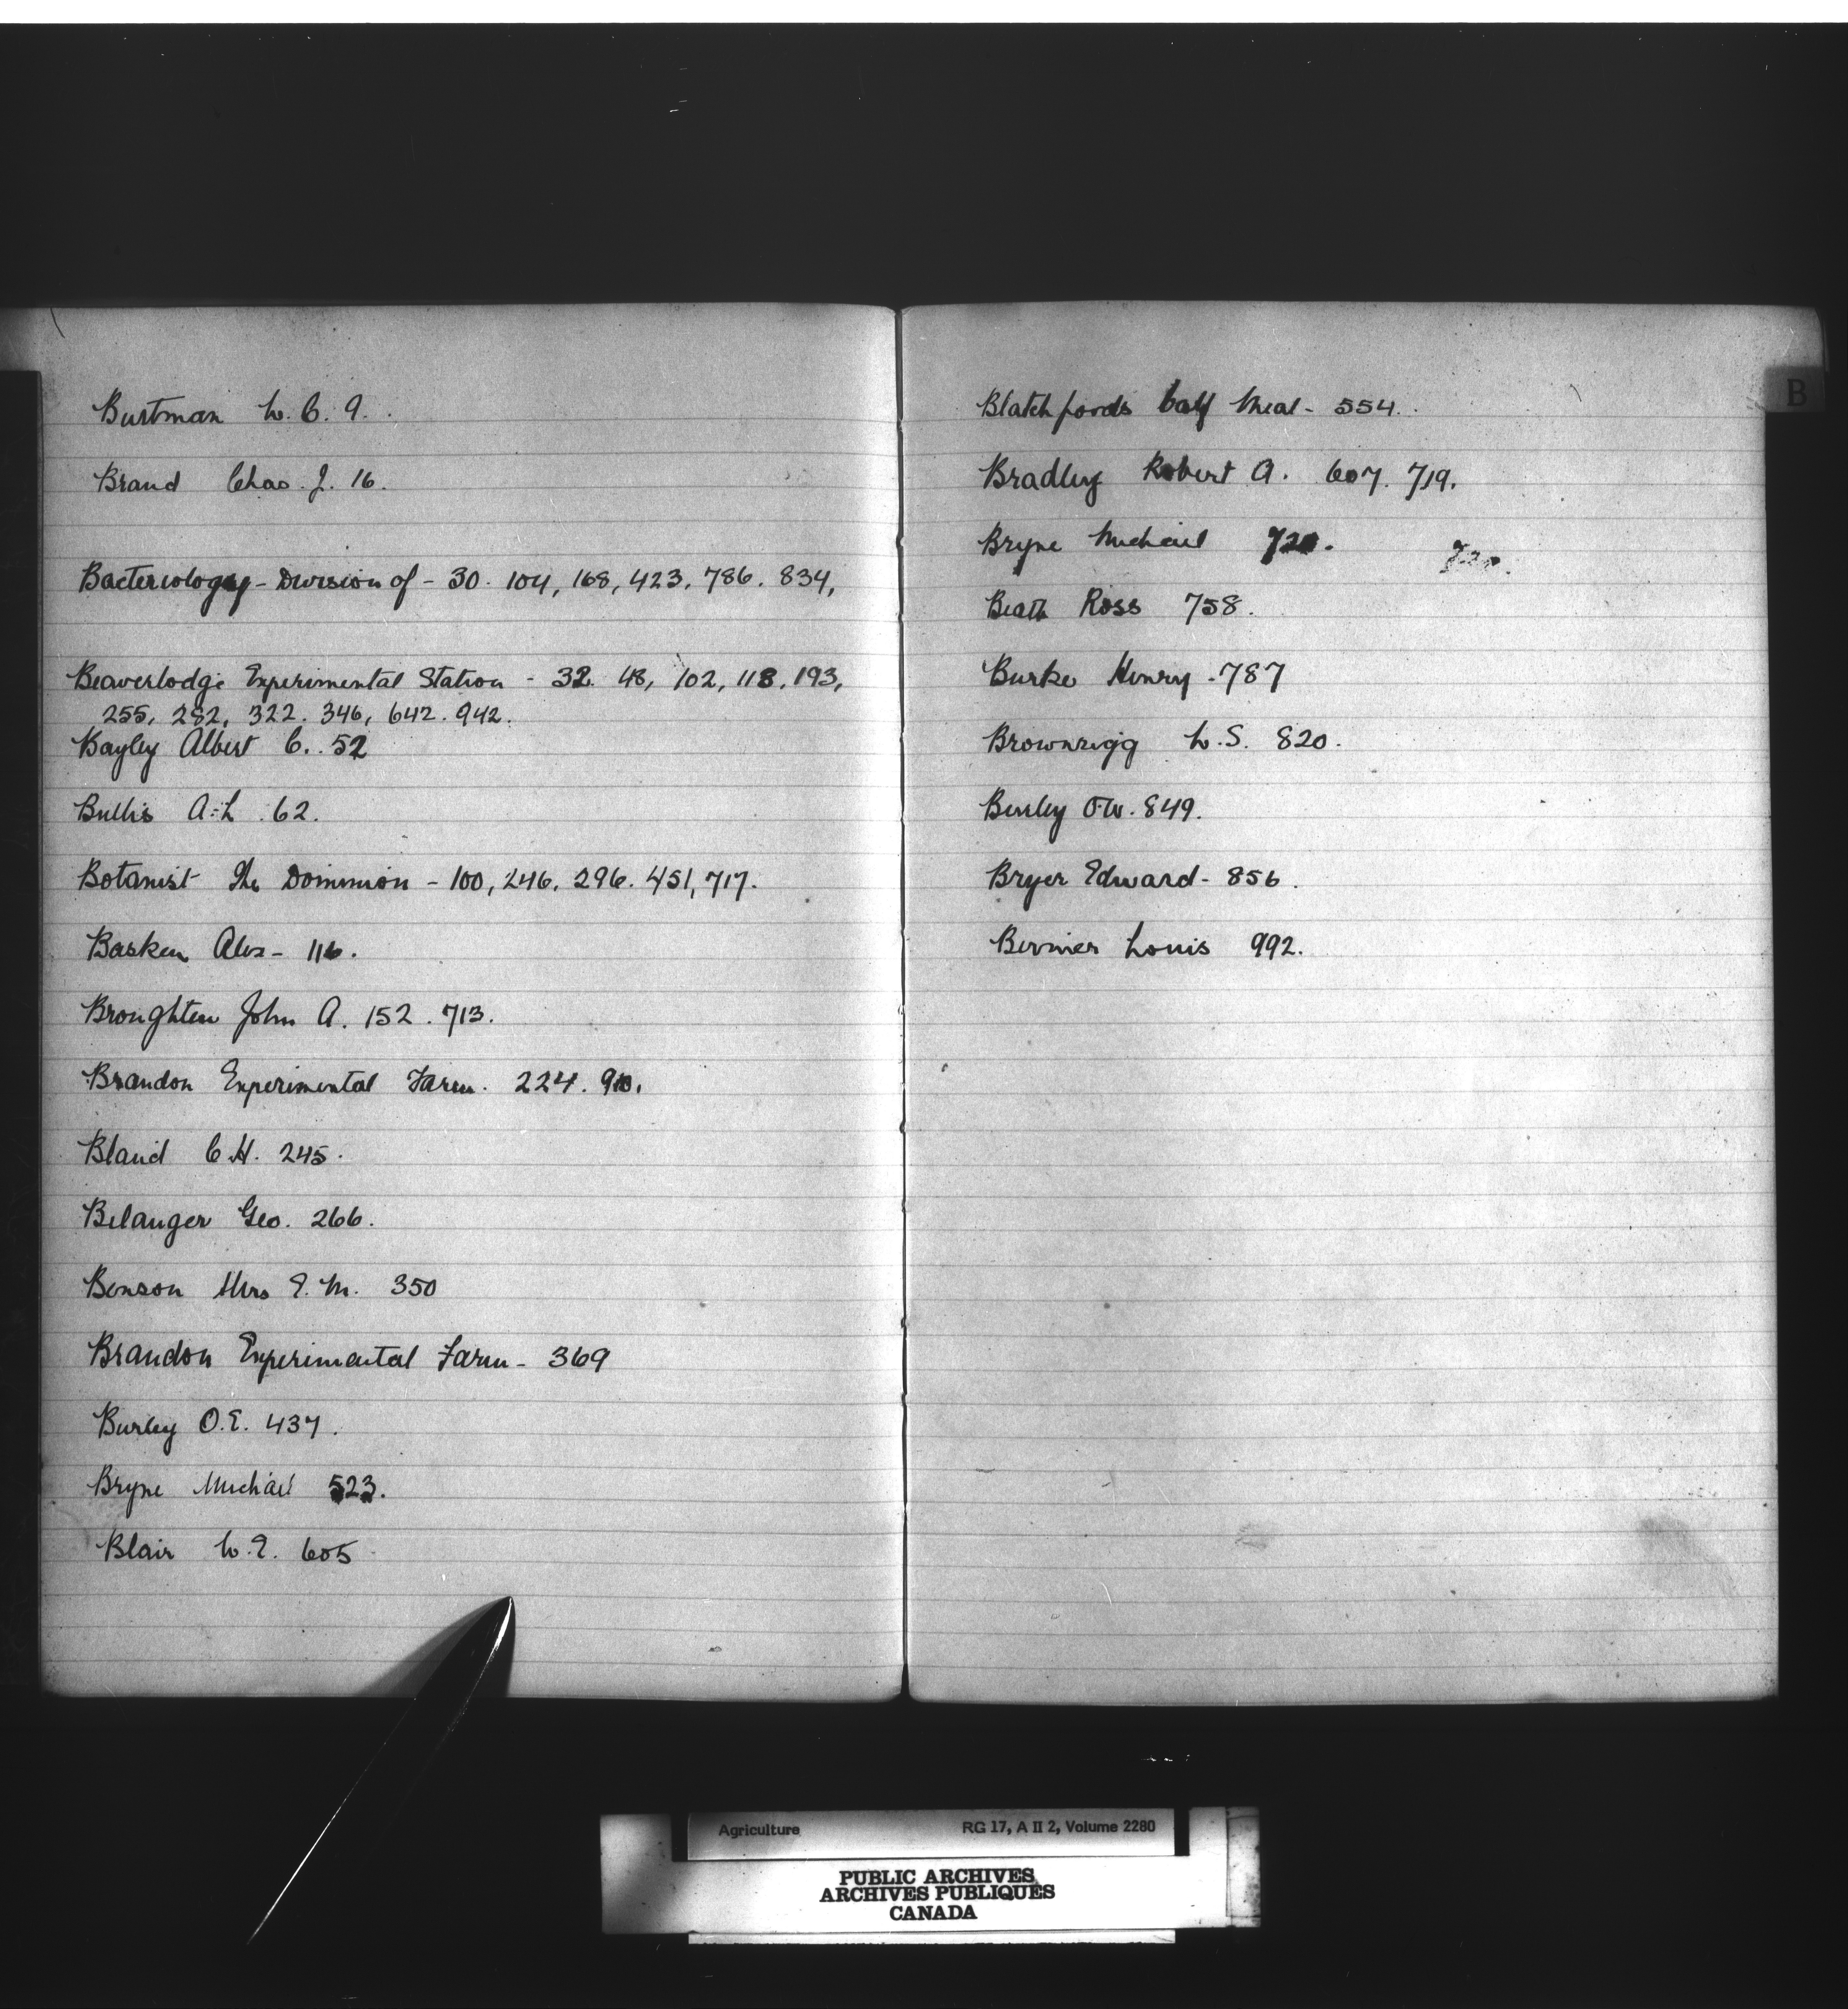 Burtman W. C. 9.
Brand Chas. J. 16.
Bacteriology - Division of - 30. 104, 168, 423. 786. 834,
Beaverlodge Experimental Station - 32. 48, 102, 118, 193,
255, 282, 322. 346, 642. 942.
Bayley Albert C. 52
Bullis A. L. 62.
Botanist The Dominion - 100, 246, 296. 451, 717.
Basken Alex - 116.
Broughten John A. 152. 713.
Brandon Experimental Farm. 224. 910.
Bland C. H. 245.
Belanger Geo. 266.
Benson Mrs E. M. 350
Brandon Experimental Farm - 369
Burley O. E. 437.
Bryne Michael 523.
Blair W. E. 605
B
Blatchfords Calf Meal - 554.
Bradley Robert A. 607. 719.
Bryne Michael 720. 720.
Beath Ross 758.
Burke Henry - 787
Brownrigg L. S. 820.
Burley O. W. 849.
Bryer Edward - 856.
Bernier Louis 992.
Agriculture RG 17, A II 2, Volume 2280
PUBLIC ARCHIVES
ARCHIVES PUBLIQUES
CANADA